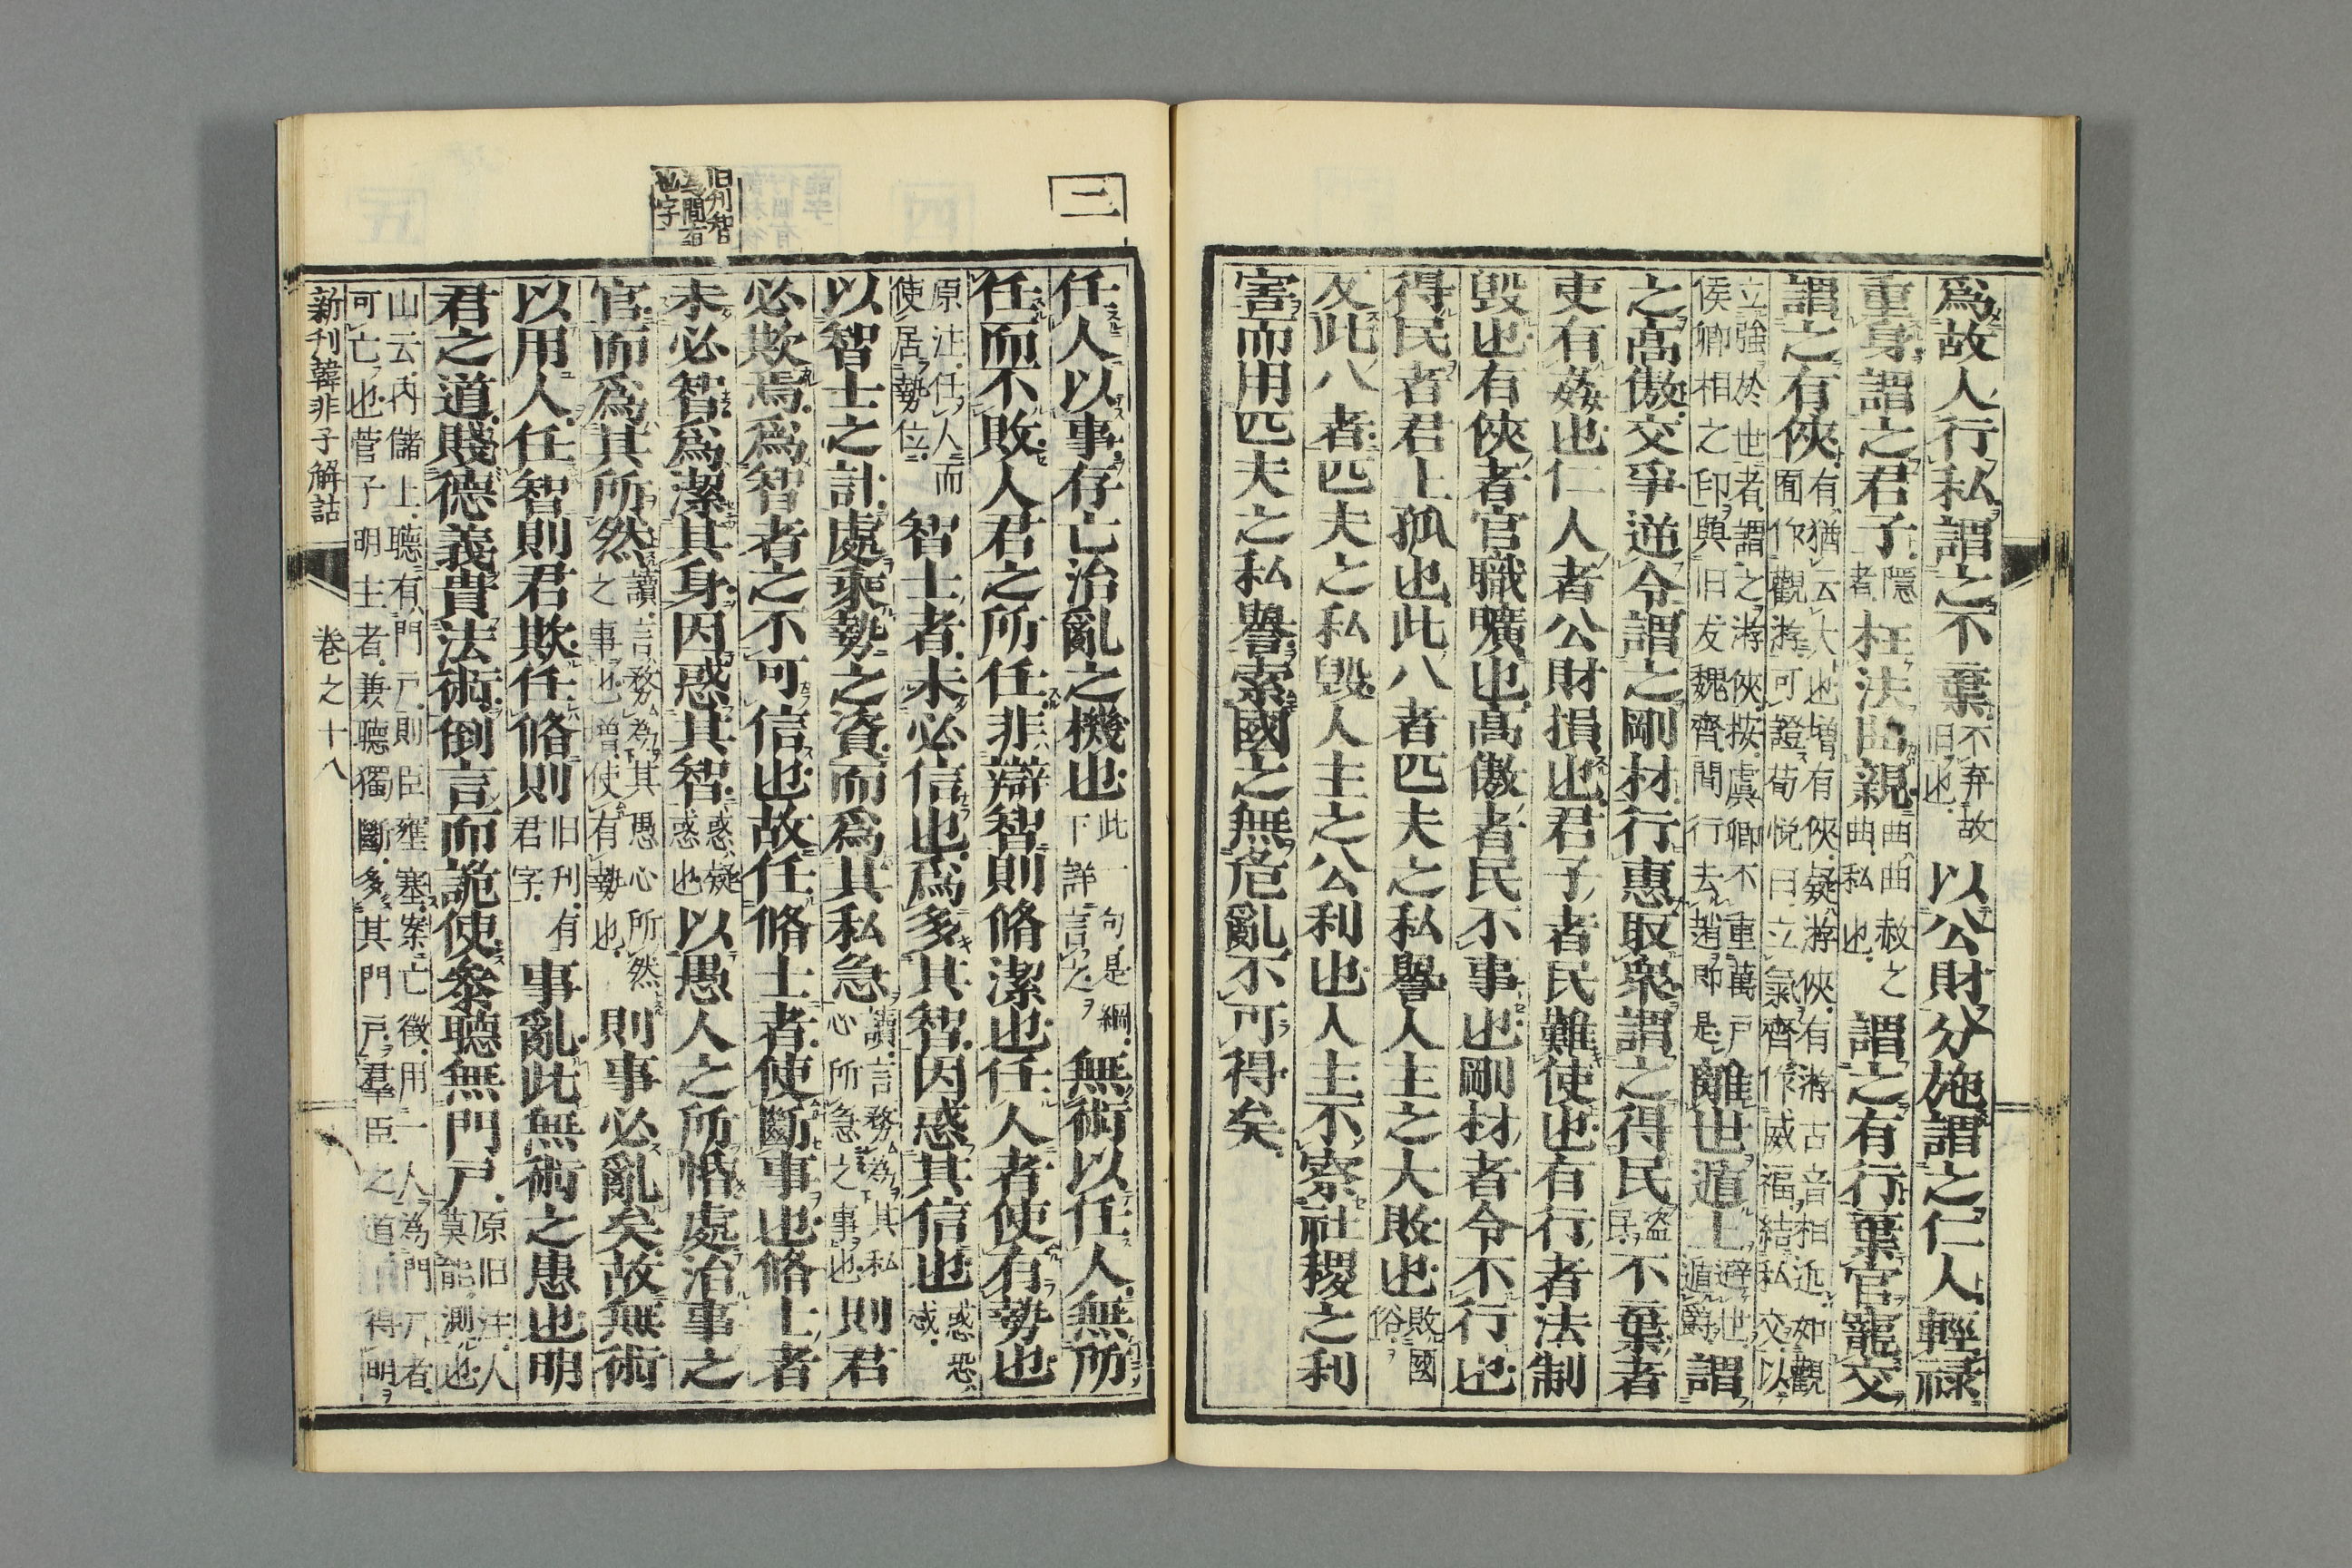 爲故人行私謂之不棄不弃故旧也以公財分施謂之仁人輕祿
重身謂之君子隱者枉法曲親曲曲赦之曲私也謂之有行棄官寵交
謂之有俠有猶云大也増有俠疑游俠有游古音相近如觀囿作觀游可證荀悦曰立氣齊作威福結私交以
立強於世者謂之游俠按虞卿不重萬戸侯卿相之印與旧友魏齊間行去趙即是離世遁上避世遁爵謂
之高傲交爭逆令謂之剛材行惠取衆謂之得民盗民不棄者
吏有姦也仁人者公財損也君子者民難使也有行者法制
毀也有俠者官職曠也高傲者民不事也剛材者令不行也
得民者君上孤也此八者匹夫之私譽人主之大敗也敗國俗
反此八者匹夫之私毀人主之公利也人主不察社稷之利
害而用匹夫之私譽索國之無危亂不可得矣
三
任人以事存亡治亂之機也此一句是綱下詳言之無術以任人無所
任而不敗人君之所任非辯智則脩潔也任人者使有勢也
原注任人而使居勢位智士者未必信也爲多其智因惑其信也惑恐惑
以智士之計處乘勢之資而爲其私急讀言務為其私心所急之事也則君
必欺焉爲智者之不可信也故任脩士者使斷事也脩士者
旧刋智為間有也字
未必智爲潔其身因惑其智惑疑惑也以愚人之所惛處治事之
官而爲其所然讀言務為其愚心所然之事也増使有勢也則事必亂矣故無術
以用人任智則君欺任脩則旧刋有君字事亂此無術之患也明
君之道賤德義貴法術倒言而詭使參聽無門戸原旧注人莫能測也
山云内儲上聽有門戸則臣壅塞案亡徴用一人為門戸者可亡也管子明主者兼聽獨斷多其門戸羣臣之道得明
新刊韓非子解詁
卷之十八